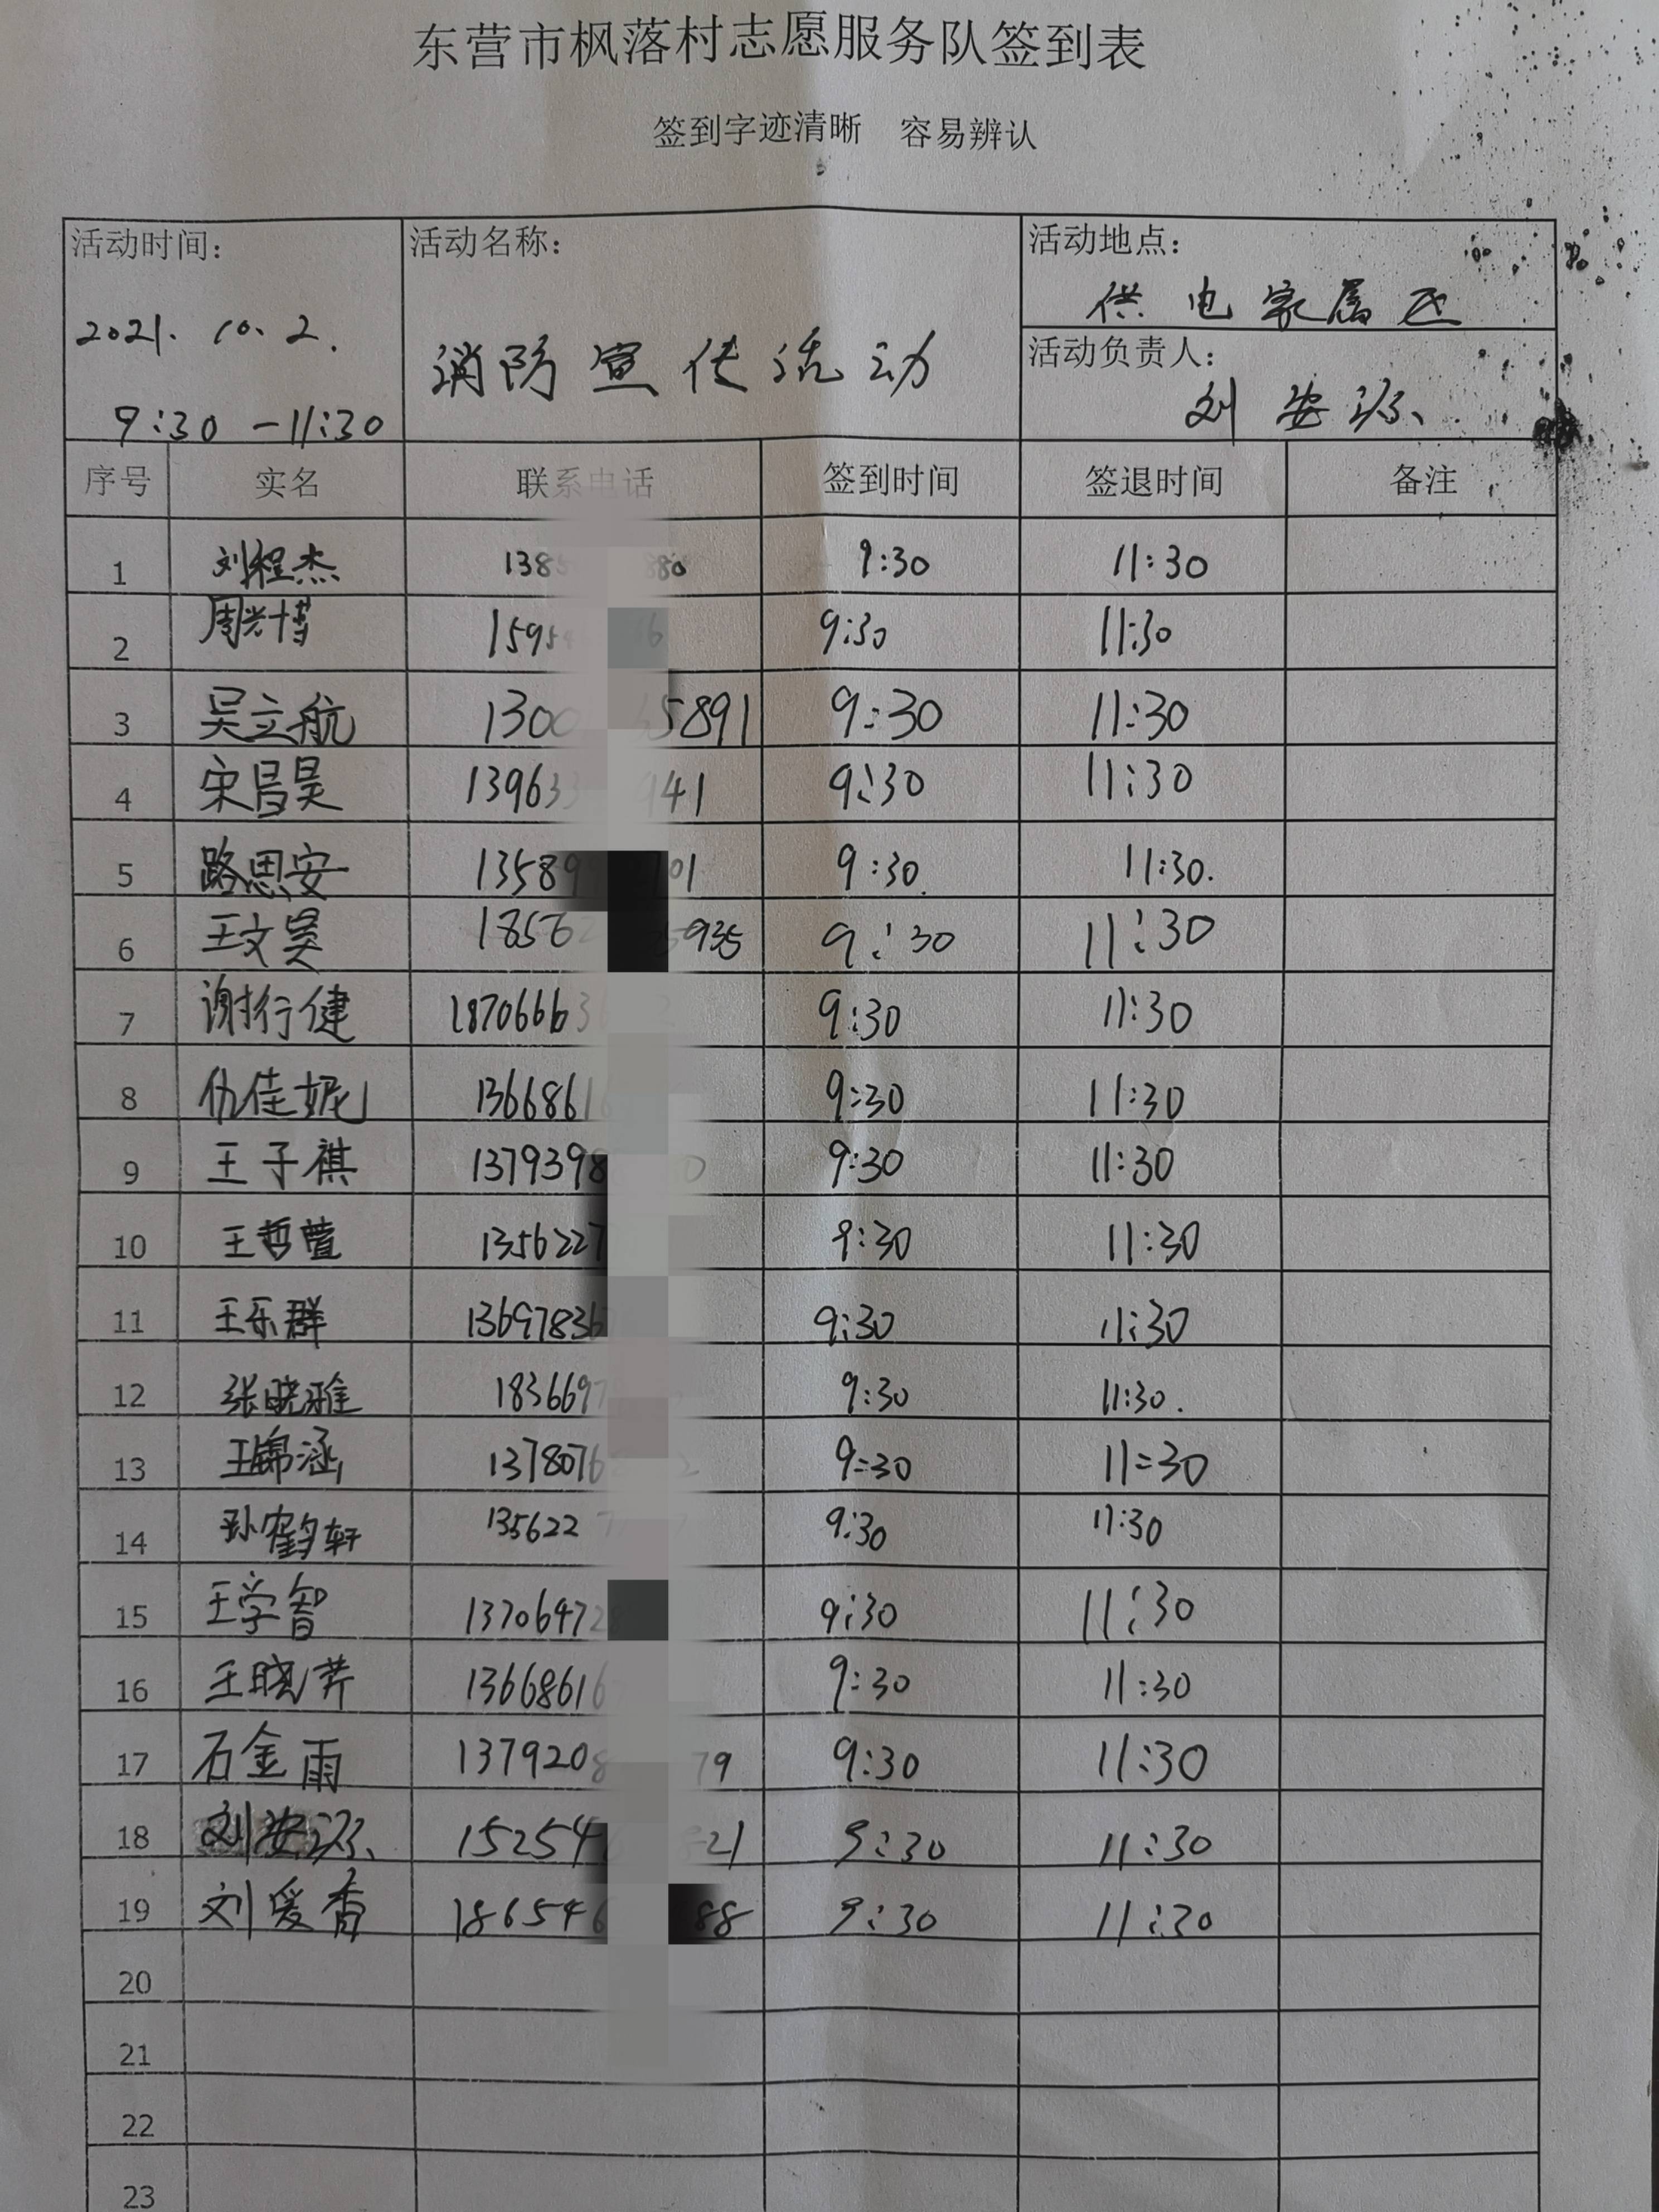 东营市枫落村志愿服务队签到表
签到字迹清晰 容易辨认
活动时间： 活动名称： 活动地点：
供电家属区
2021.10.2. 消防宣传活动 活动负责人：
9:30-11:30 刘安源
序号 实名 联系电话 签到时间 签退时间 备注
1 刘程杰 138 880 9:30 11:30
2 周兴博 1595 16 9:30 11:30
3 吴立航 1300 65891 9:30 11:30
4 宋昌昊 13963 941 9:30 11:30
5 路思安 13589 101 9:30. 11:30.
6 王文昊 1856 5935 9:30 11:30
7 谢行健 18706663 9:30 11:30
8 仇佳妮 1366861 9:30 11:30
9 王子祺 1379398 0 9:30 11:30
10 王哲萱 1356227 9:30 11:30
11 王乐群 13697836 9:30 11:30
12 张晓雅 1836697 9:30 11:30.
13 王锦涵 1378076 2 9:30 11:30
14 孙鹤轩 135622 7 9:30 11:30
15 王学智 13706472 9:30 11:30
16 王晓芹 13668616 9:30 11:30
17 石金雨 1379208 79 9:30 11:30
18 刘安源 15254 21 9:30 11:30
19 刘爱香 186546 88 9:30 11:30
20
21
22
23